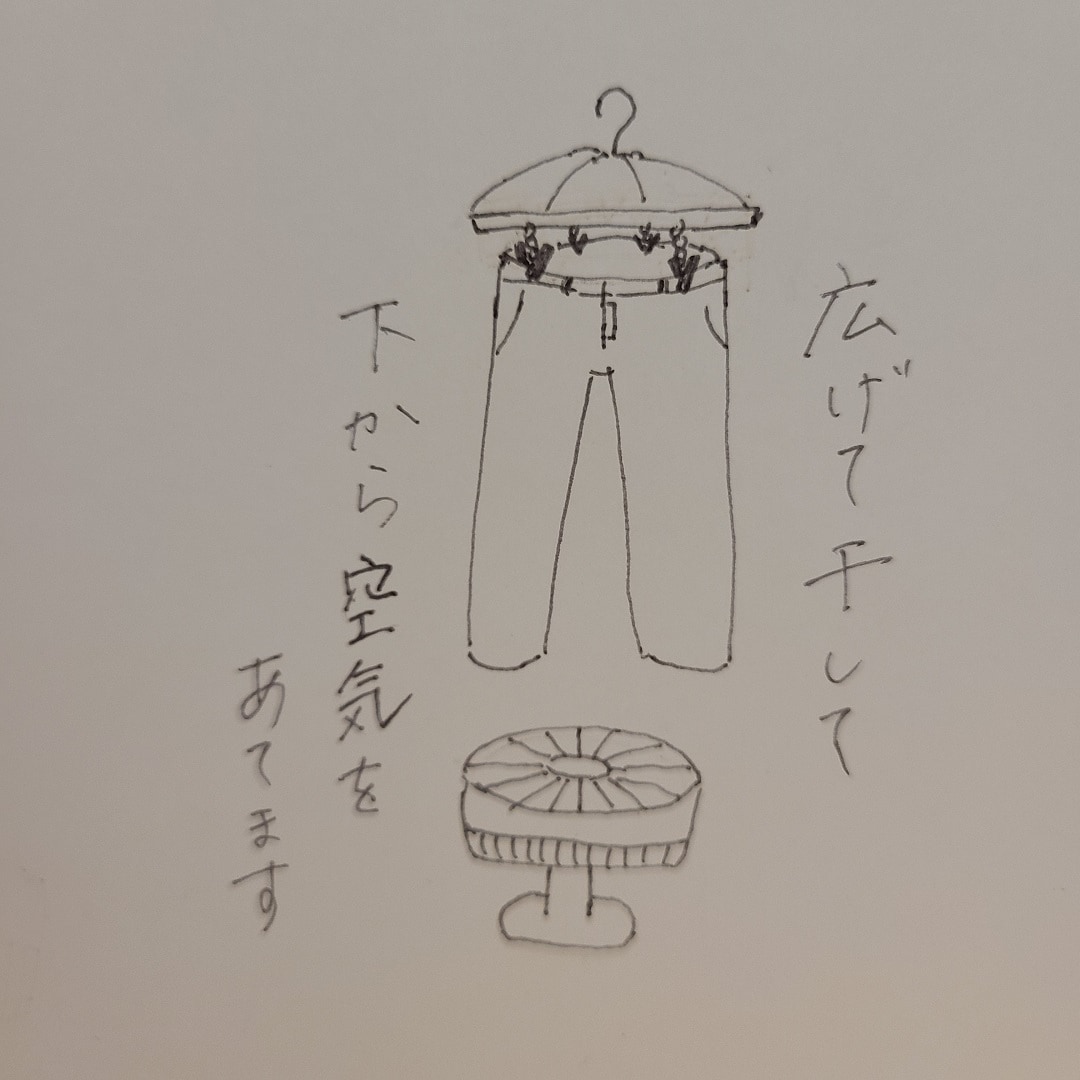 広げて干して
下から空気を
あてます